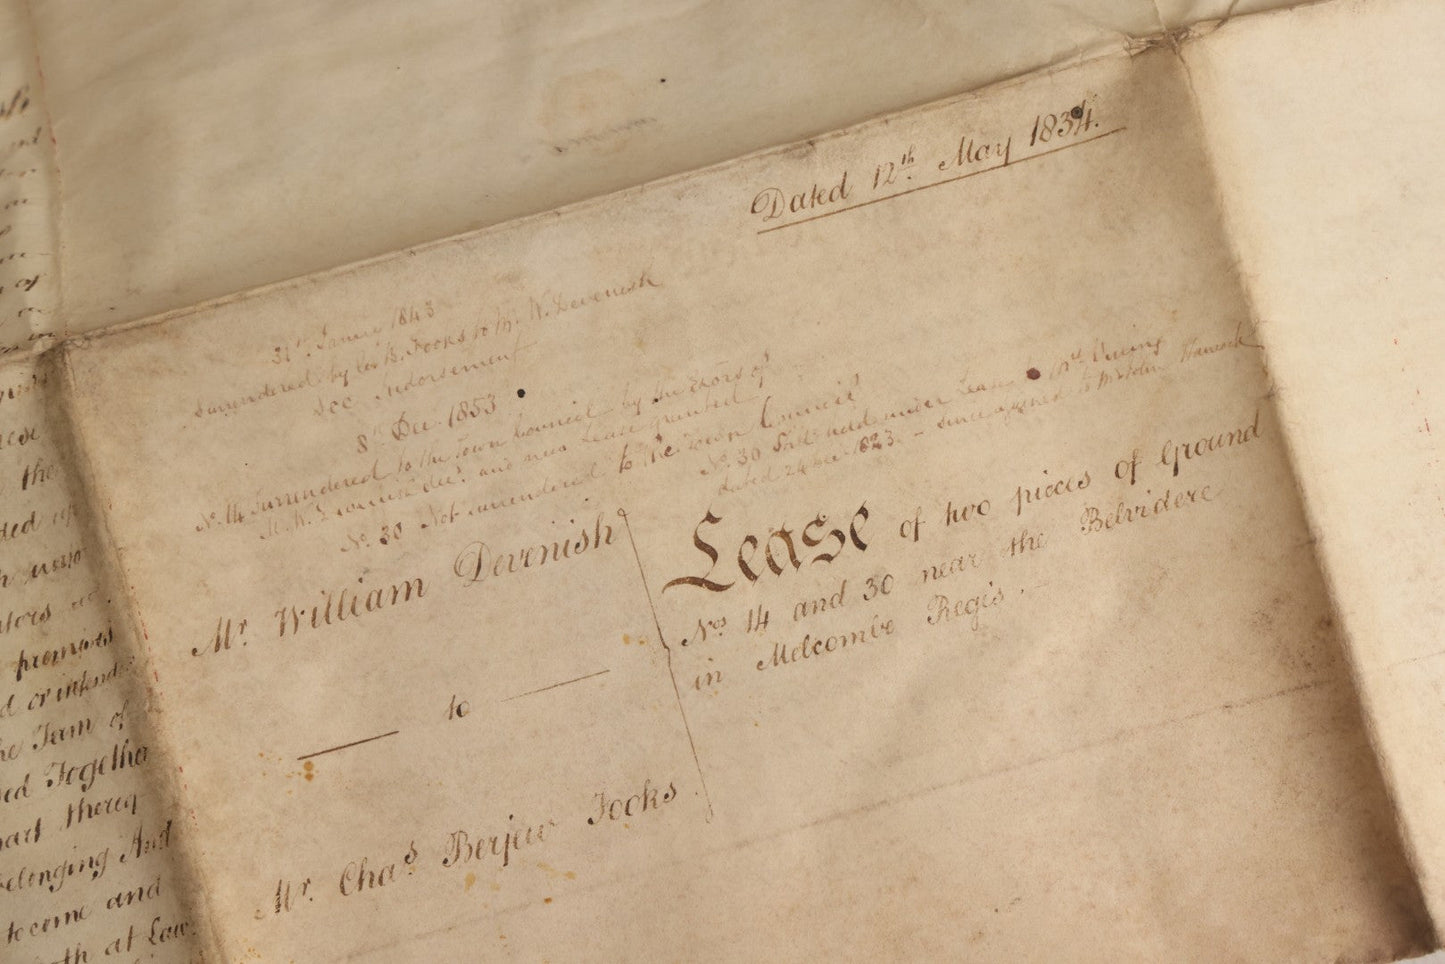 Dated 12th May 1834.
31st Janu 1843
Surrendered by Cs B. Fooks to Mr W. Devenish
See Indorsement
8th Dec. 1853
No. 14 Surrendered to the Town Council by the Exors of
Mr W. Devenish decd and new Lease granted
No. 30 Not surrendered to the Town Council
No. 30 Still held under Lease to
dated 24 Dec. 1823. – since assigned to Mr John Hancock
Mr. William Devenish
to
Mr. Chas Berjew Fooks
Lease of two pieces of Ground
Nos 14 and 30 near the Belvidere
in Melcombe Regis.
the
premises
d or intend
he Term of
ed Together
part thereof
belonging And
to come and
th at Law